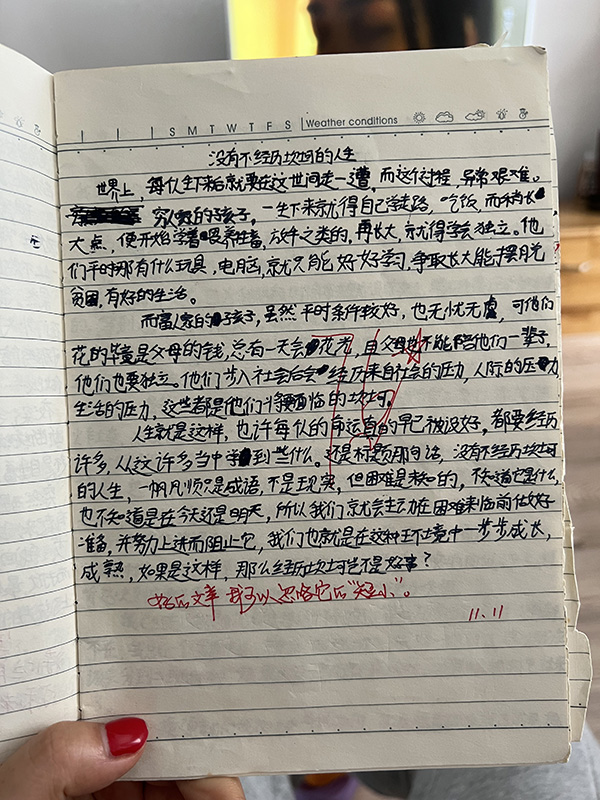 S M T W T F S Weather conditions
没有不经历坎坷的人生
世界上，每个人生下来后就要在这世间走一遭，而这个过程，异常艰难。
穷人家的孩子，一生下来就得自己学走路，吃饭，而稍长
大点，便开始学着喂养牲畜，放牛之类的，再长大，就得学会独立。他
们平时哪有什么玩具，电脑，就只能好好学习，争取长大能摆脱
贫困，有好的生活。
而富人家的孩子，虽然平时条件较好，也无忧无虑，可他们
花的毕竟是父母的钱，总有一天会花光，且父母也不能陪他们一辈子，
他们也要独立。他们步入社会后会经历来自社会的压力，人际的压力
生活的压力，这些都是他们将要面临的坎坷。
人生就是这样，也许每个人的命运真的早已被设好，都要经历
许多，从这许多当中学到些什么。还是标题那句话，没有不经历坎坷
的人生，一帆风顺只是成语，不是现实，但困难是未知的，不知道它是什么，
也不知道是在今天还是明天，所以我们就会主动在困难来临前做好
准备，并努力上进而阻止它，我们也就是在这种环境中一步步成长，
成熟，如果是这样，那么经历坎坷岂不是好事？
文章 我可以忽略它的“短小”。
11.11